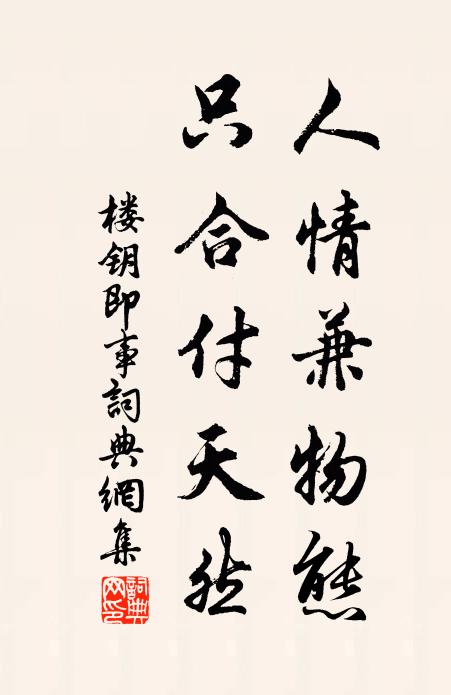 人情兼物態
只合付天然
楼钥即事詞典網集
詞典网印